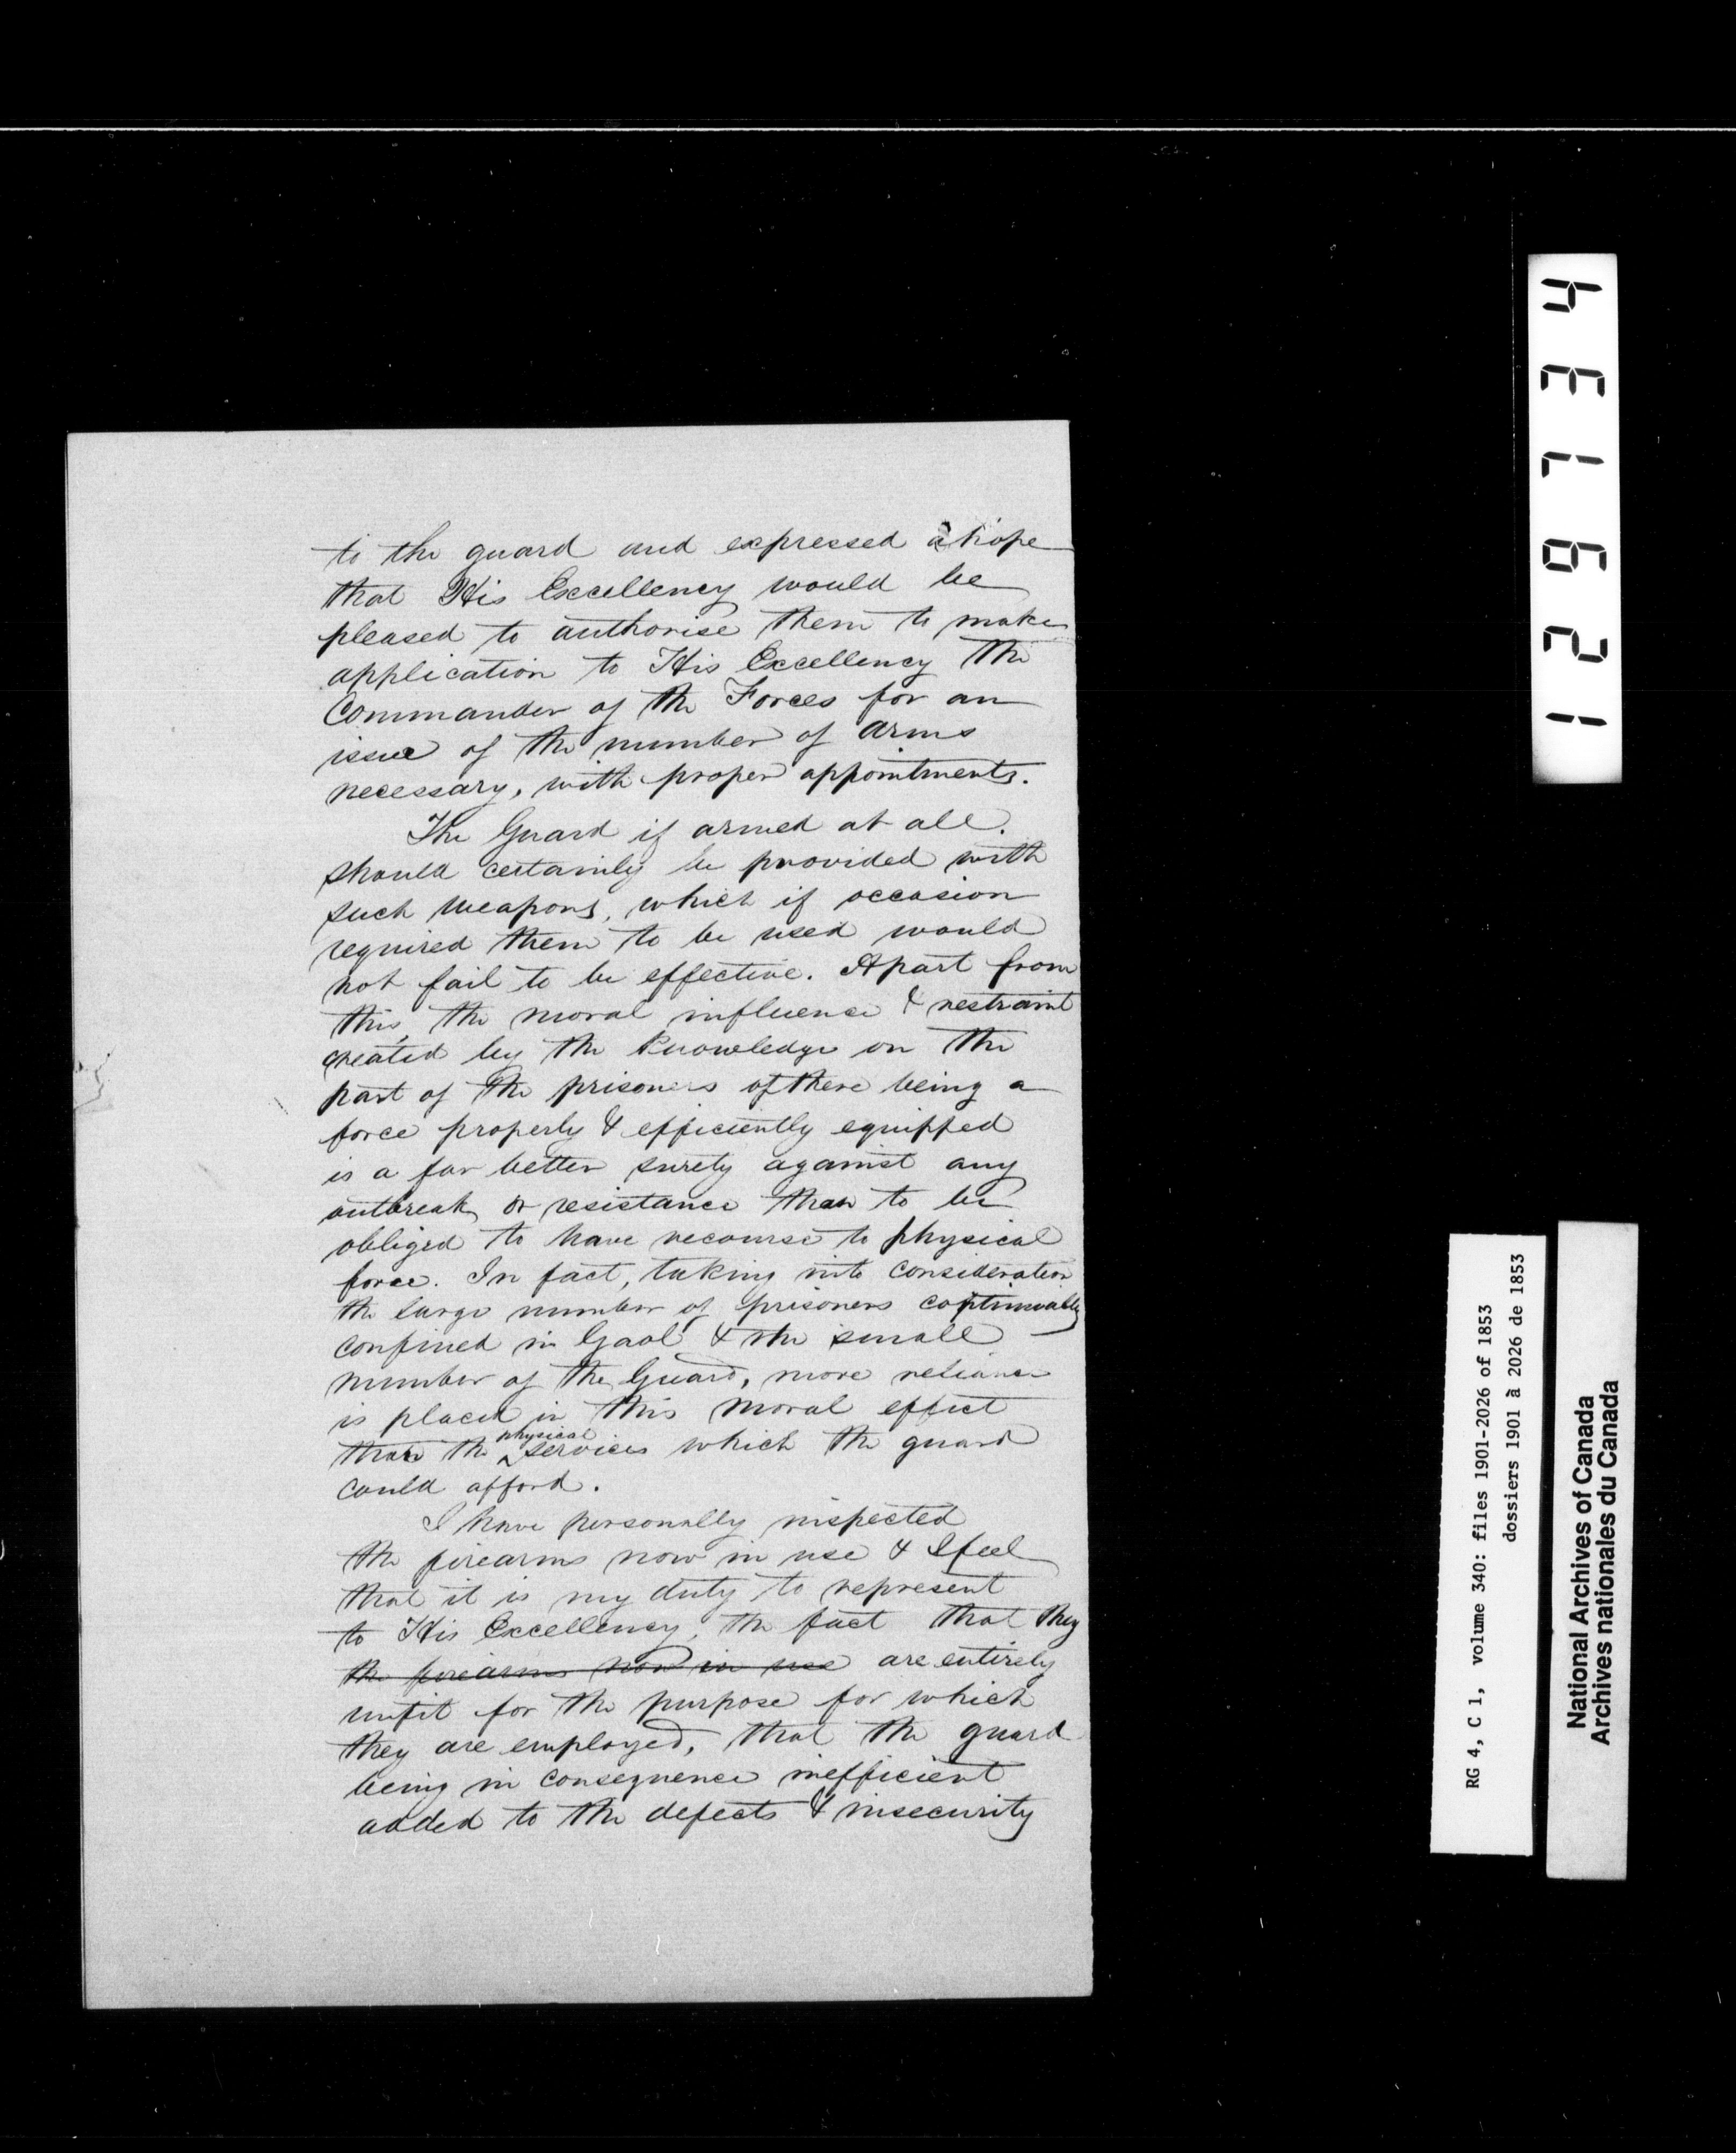 to the guard and expressed a hope
that His Excellency would be
pleased to authorise them to make
application to His Excellency the
Commander of the Forces for an
issue of the number of arms
necessary, with proper appointments.
The Guard if armed at all.
should certainly be provided with
such weapons, which if occasion
required them to be used would
not fail to be effective. Apart from
this, the moral influence & restraint
created by the knowledge on the
part of the prisoners of there being a
force properly & efficiently equipped
is a far better surety against any
outbreak or resistance than to be
obliged to have recourse to physical
force. In fact, taking into consideration
the large number of prisoners continually
confined in Gaol & the small
number of the Guard, more reliance
is placed in this moral effect
than the physical services which the guard
could afford.
I have personally inspected
the firearms now in use & I feel
that it is my duty to represent
to His Excellency, the fact that they
the firearms now in use are entirely
unfit for the purpose for which
they are employed, that the guard
being in consequence inefficient
added to the defects & insecurity
129734
RG 4, C 1, volume 340: files 1901-2026 of 1853
dossiers 1901 à 2026 de 1853
National Archives of Canada
Archives nationales du Canada